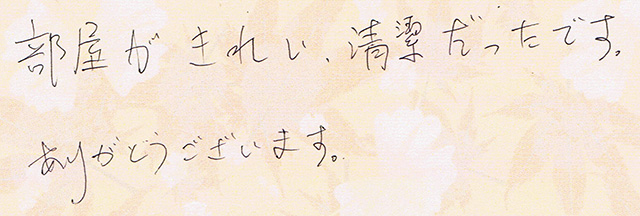 部屋がきれい、清潔だったです。
ありがとうございます。